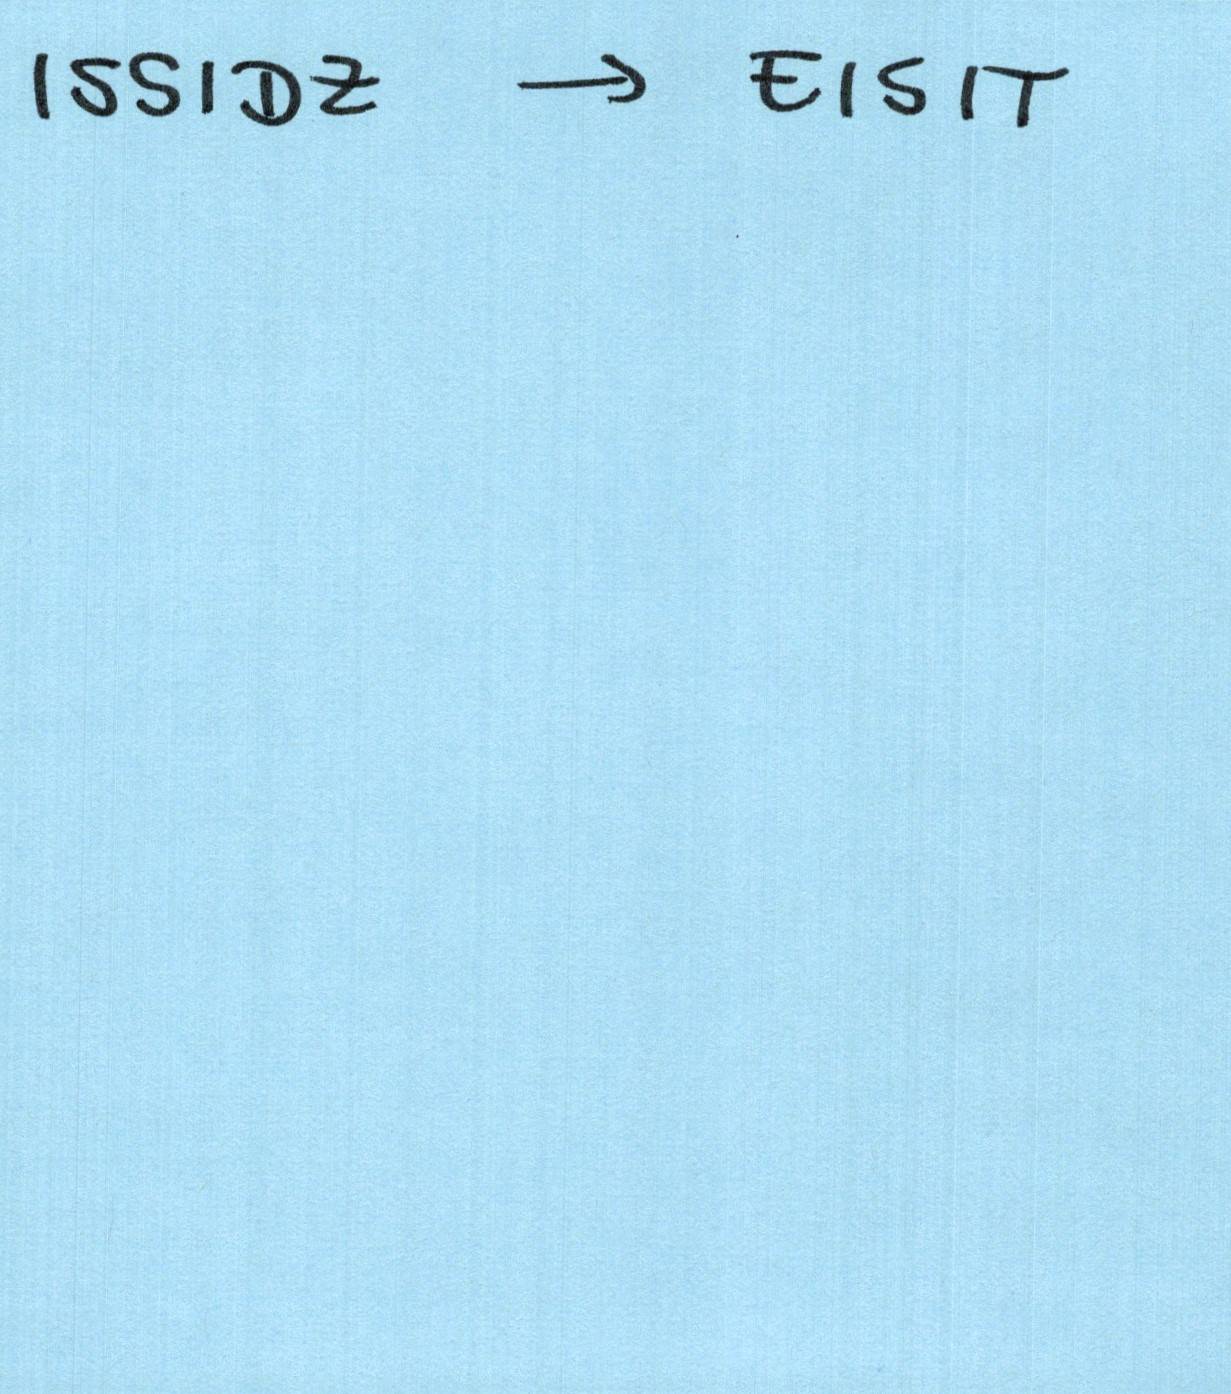 ISSIDZ → EISIT